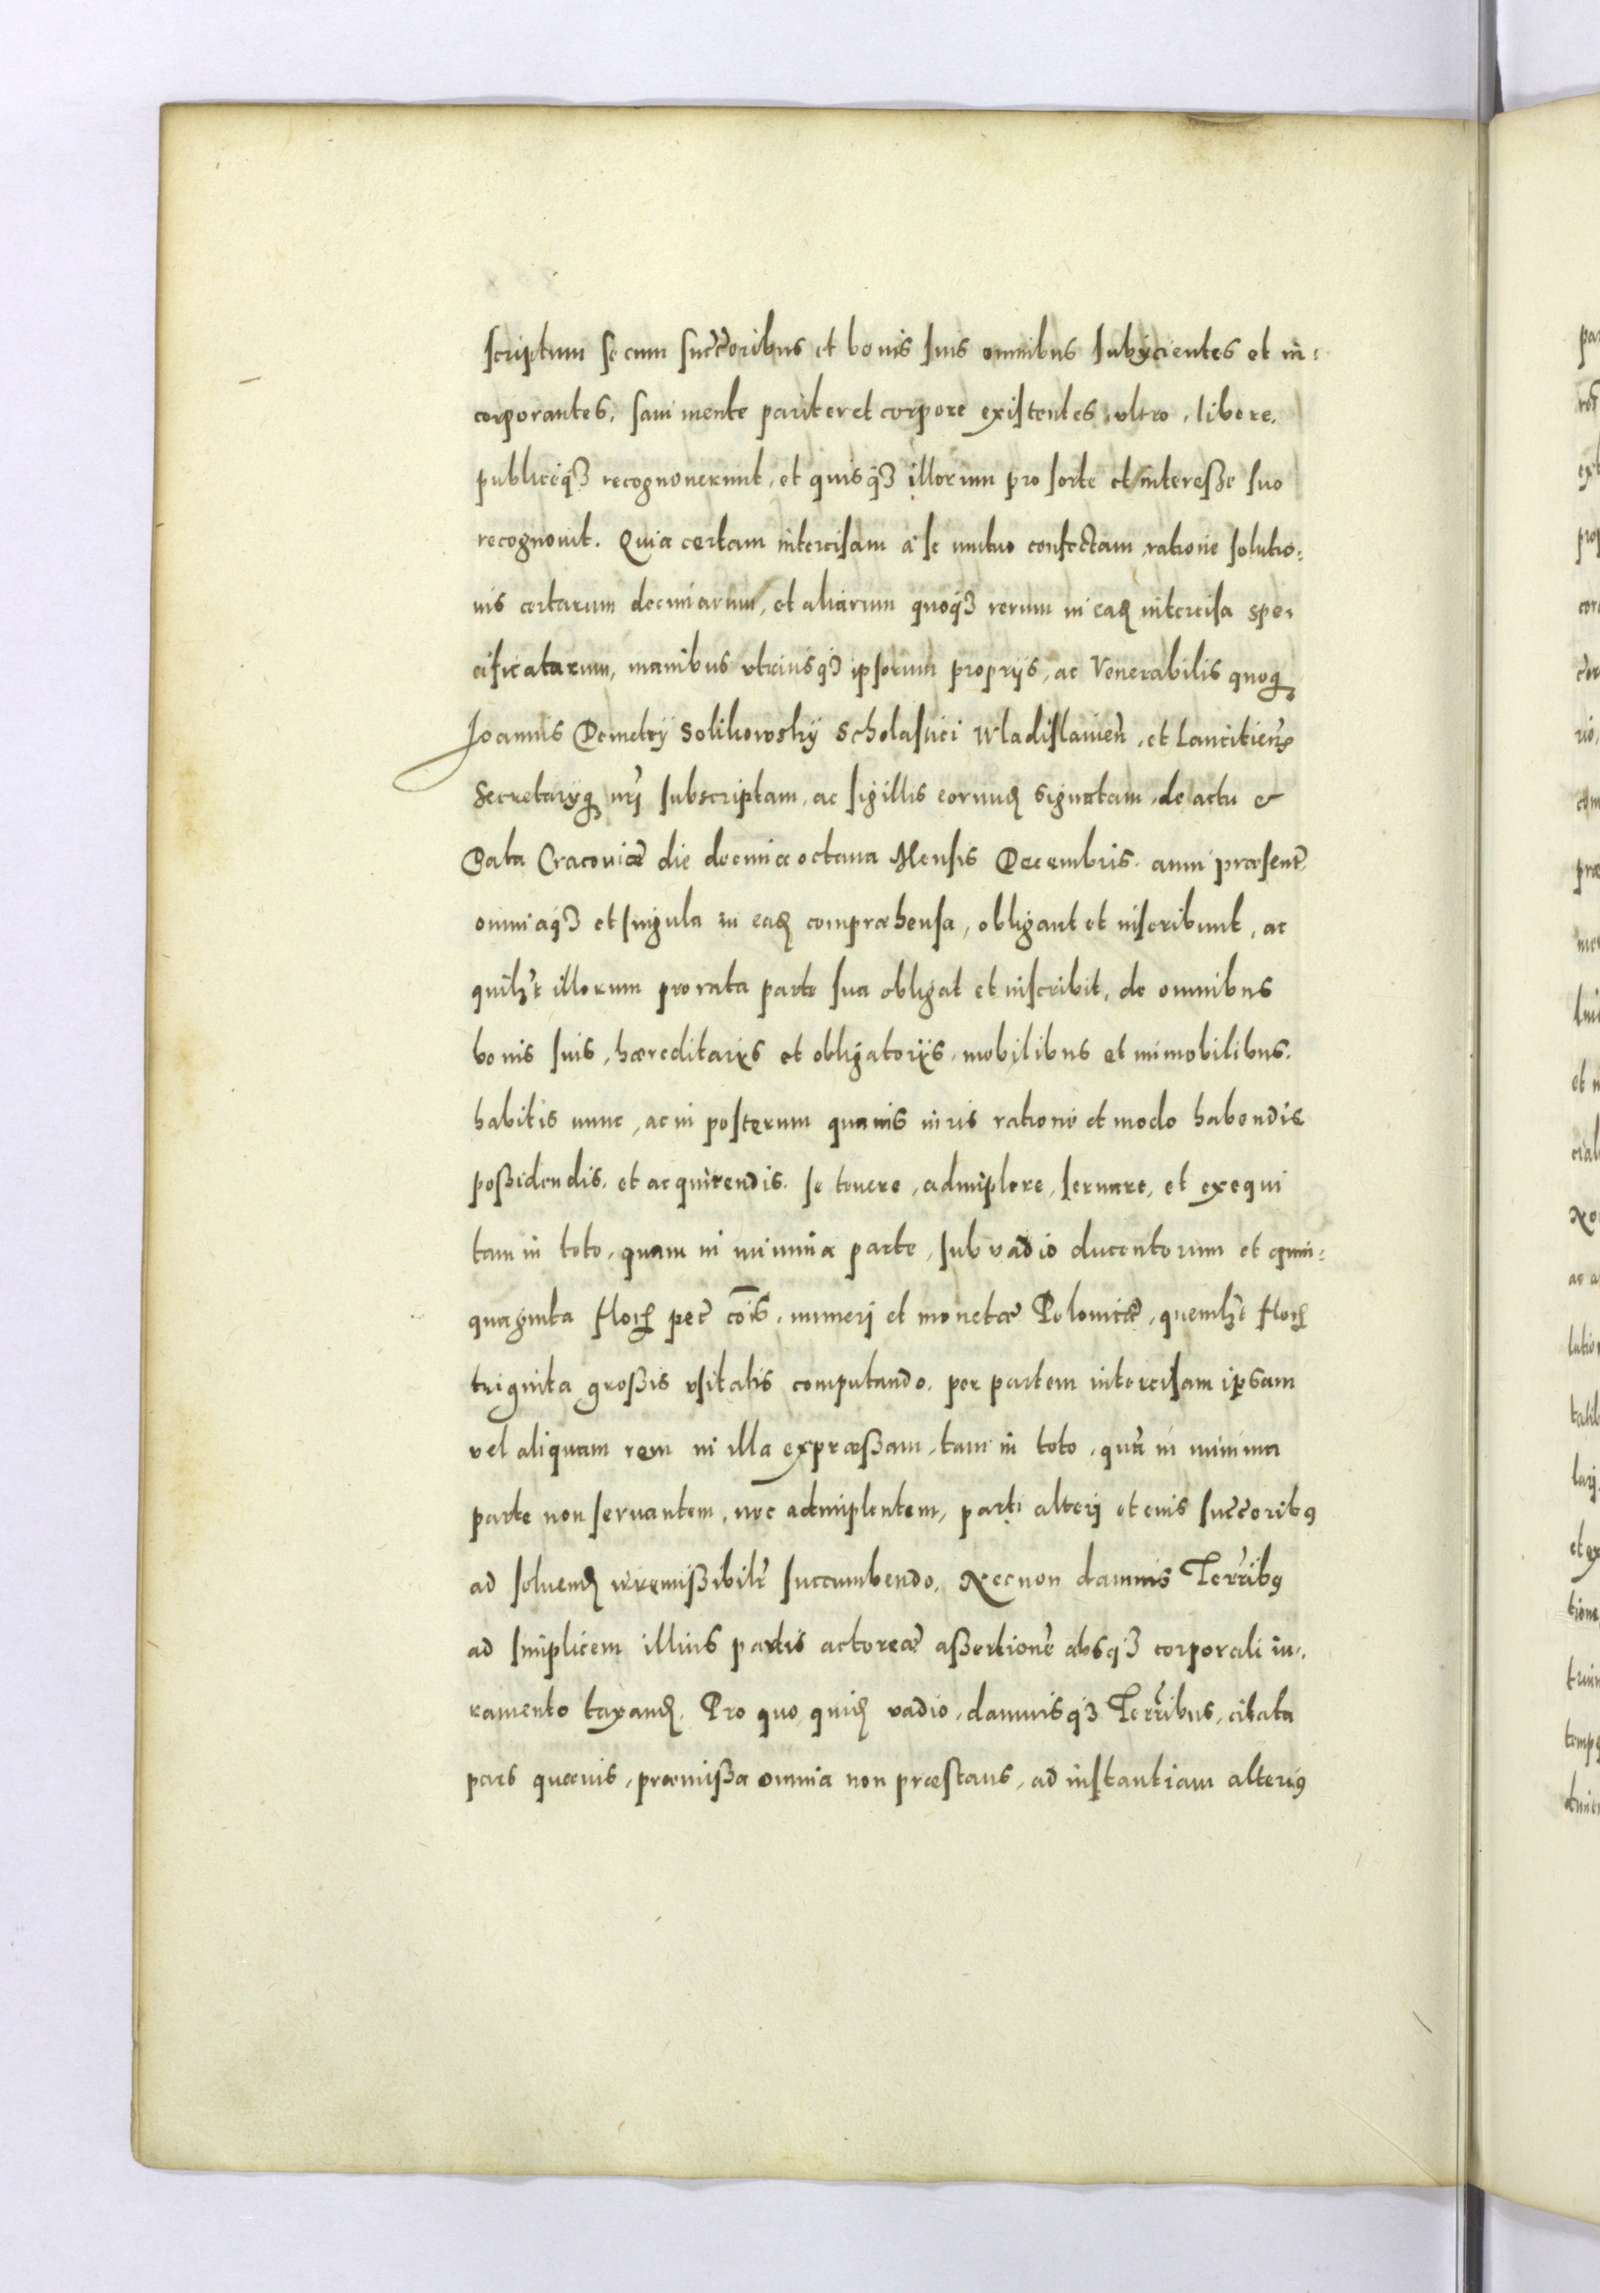 scriptum se cum succ̃oribus et bonis suis omnibus subÿcientes et in:
corporantes, sani mente pariter et corpore existentes, ultro, libere,
publiceq̃ʒ recognouerunt, et quisq̃ʒ illorum pro sorte et interesse suo
recognouit. Quia certam intercisam à se mutuo confectam, ratione solutio:
nis certarum decimarum, et aliarum quoq̃ʒ rerum in eađ intercisa spe:
cificatarum, manibus utriusq̃ʒ ipsorum proprijs, ac Venerabilis quoq̨
Joannis Demetrÿ Solikowskÿ Scholastici Wladislauieñ, et Lancitieñ
Secretarÿq̨ nr̃j subscriptam, ac sigillis eorunđ signatam, de actu et
Data Cracouiæ die decima octaua Mensis Decembris. anni præsent̃
omniaq̃ʒ et singula in eađ compræhensa, obligant et inscribunt, ac
quilɮt illorum pro rata parte sua obligat et inscribit, de omnibus
bonis suis, hæreditarÿs et obligatorÿs, mobilibus et immobilibus,
habitis nunc, ac in posterum quauis iuris ratione et modo habendis
possidendis, et acquirendis. se tenere, adimplere, seruare, et exequi
tam in toto, quam in minima parte, sub vadio ducentorum et quin:
quaginta floꝝ pec̃ cõis, numeri et monetæ Polonicæ, quemlɮt floꝝ
triginta grossis usitatis computando, per partem intercisam ipsam
vel aliquam rem in illa expræssam, tam in toto, quã in minima
parte non seruantem, nec adimplentem, parti alterj et eius succ̃oribꝰ
ad soluenđ irremissibilr̃ succumbendo, Necnon damnis Terr̃ibꝰ
ad simplicem illius partis actoreæ assertionẽ absq̃ʒ corporali iu:
ramento taxanđ. Pro quo quiđ vadio, damnisq̃ʒ Terr̃ibus, citata
pars quæuis, præmissa omnia non præstans, ad instantiam alteriꝰ